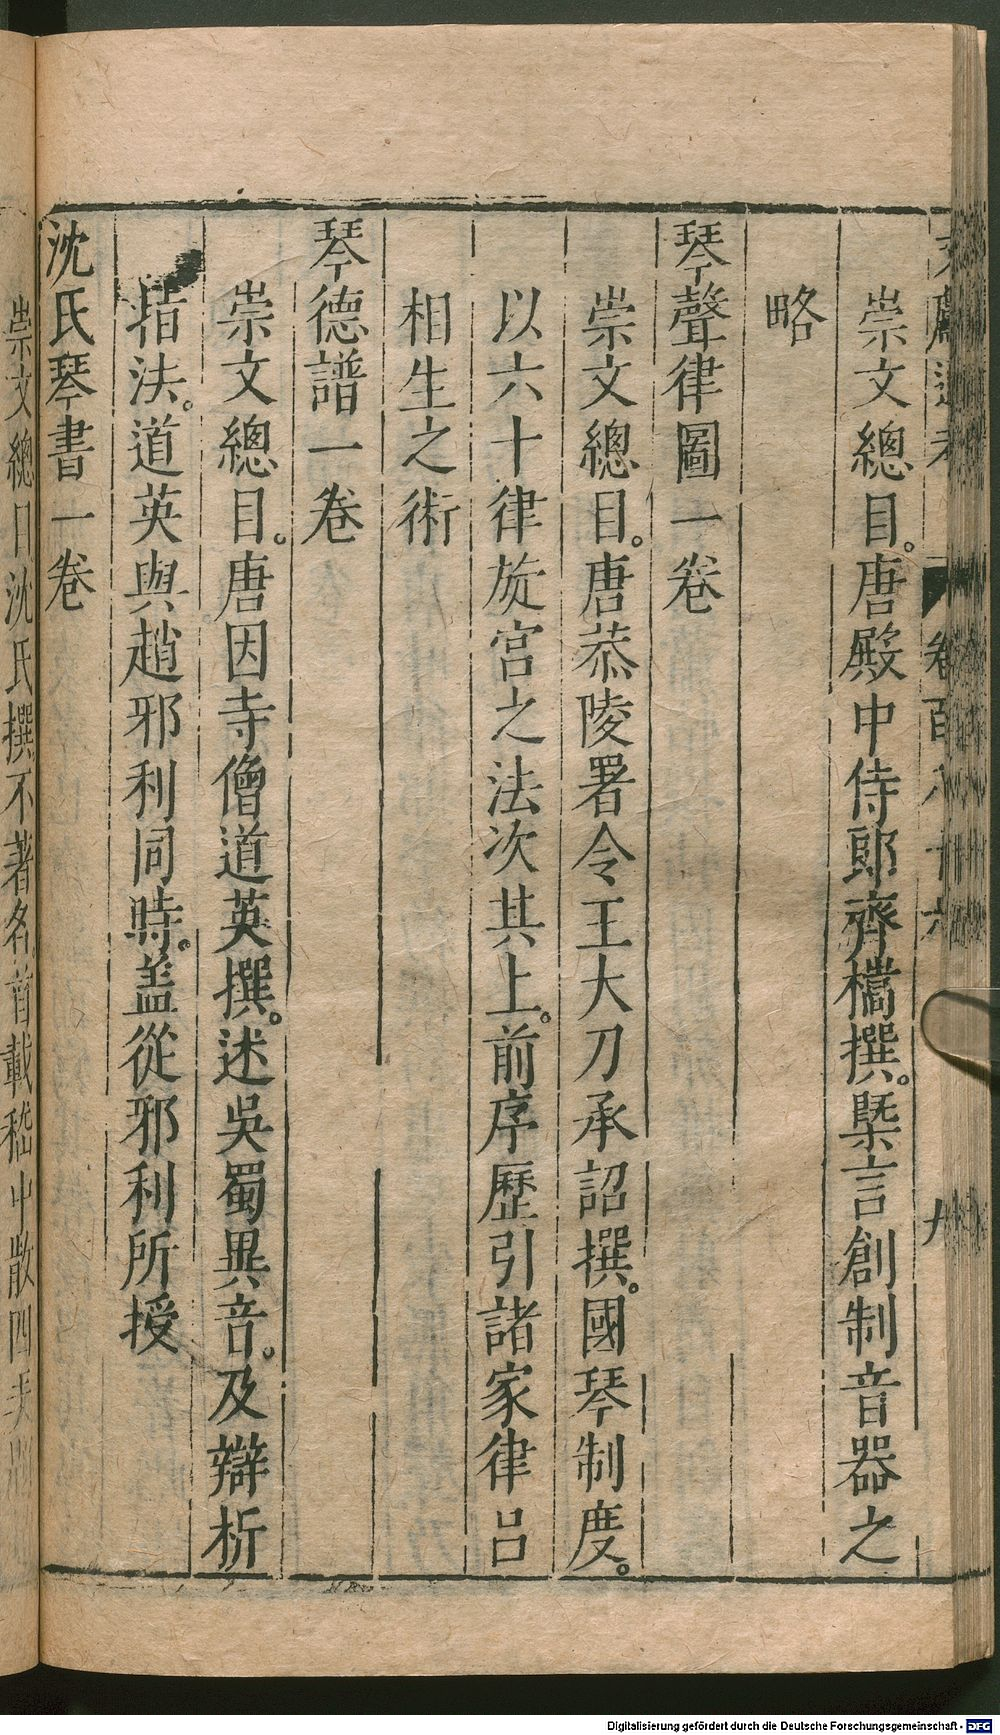 崇文總目。唐殿中侍郎齊檇撰。槩言創制音器之
略
琴聲律圖一卷
崇文總目。唐恭陵署令王大刀承詔撰。國琴制度。
以六十律旋宮之法次其上。前序歷引諸家律呂
相生之術
琴德譜一卷
崇文總目。唐因寺僧道英撰。述吳蜀異音。及辯析
指法。道英與趙邪利同時。盖從邪利所授
沈氏琴書一卷
崇文總目沈氏撰不著名首載嵇中散四
Digitalisierung gefördert durch die Deutsche Forschungsgemeinschaft - DFG